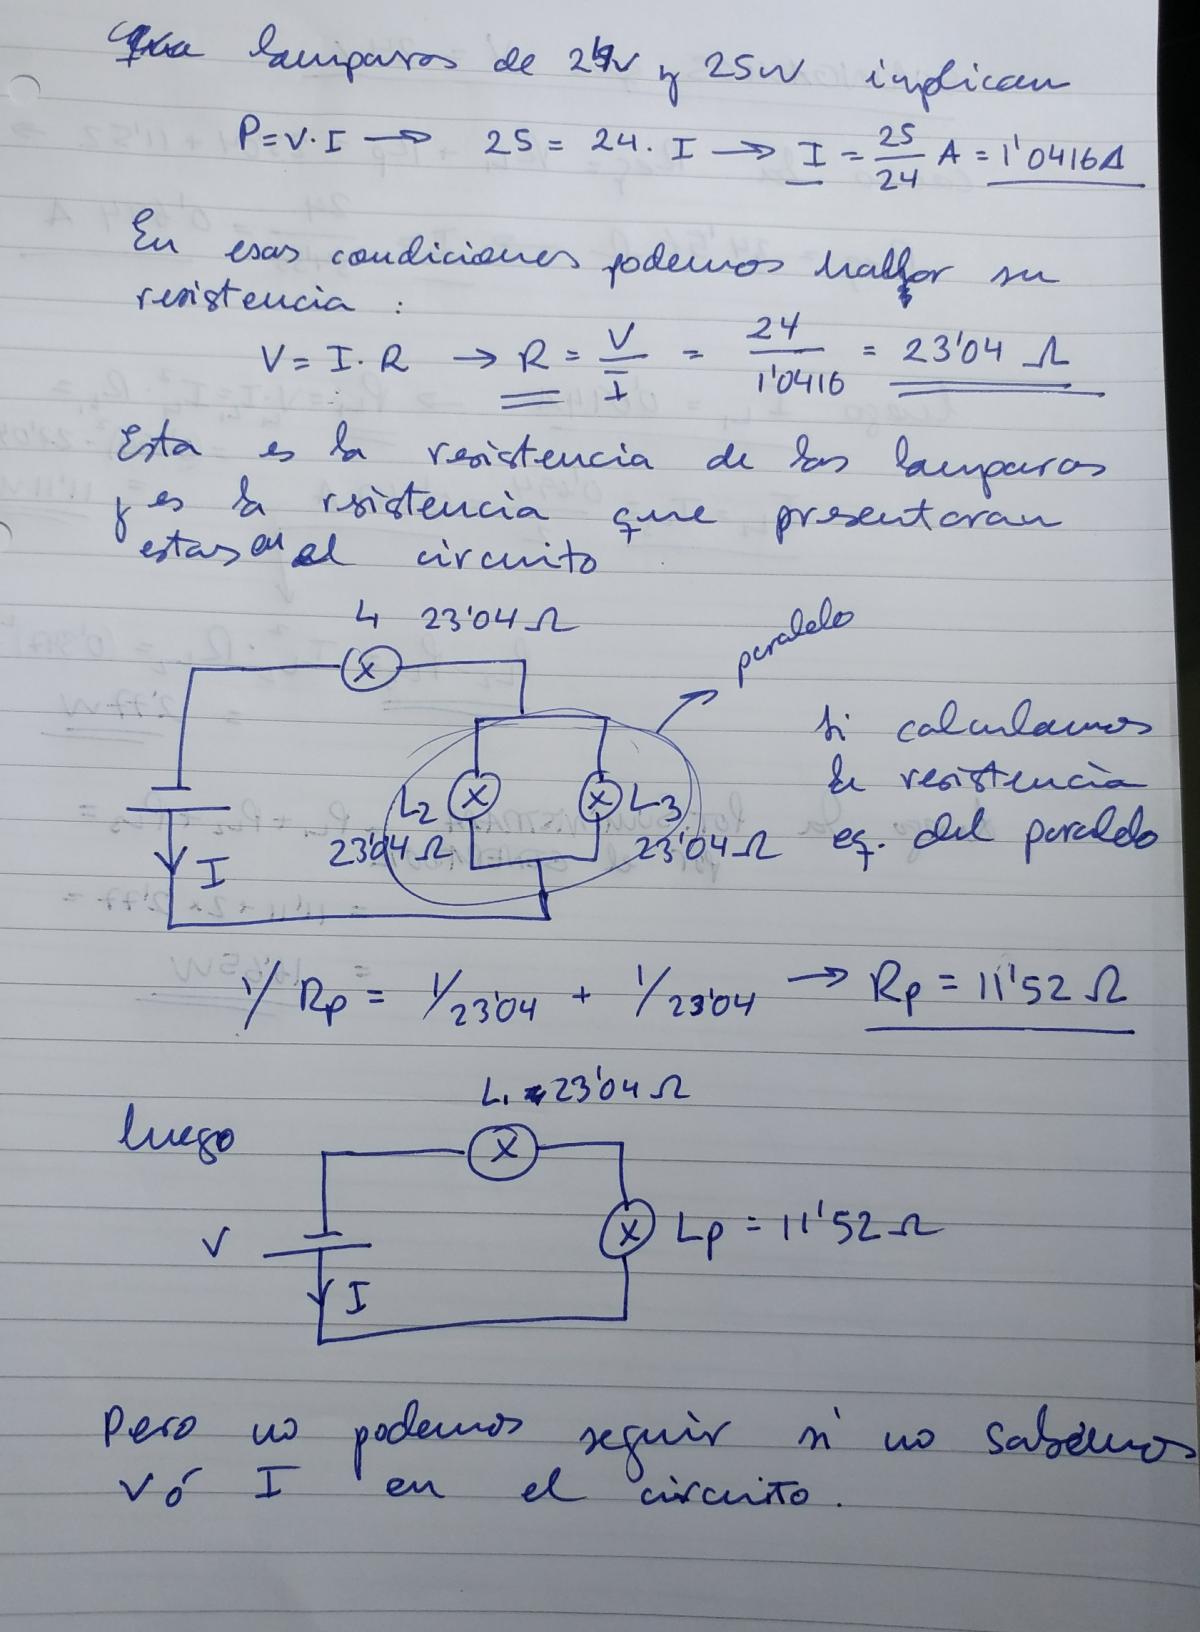 lamparas de 24V y 25W implican
P=V·I → 25 = 24·I → I = 25/24 A = 1'0416A
En esas condiciones podemos hallar su
resistencia :
V = I·R → R = V/I = 24/1'0416 = 23'04 Ω
Esta es la resistencia de las lamparas
y es la resistencia que presentaran
estas en el circuito
L1 23'04 Ω
paralelo
Si calculamos
la resistencia
eq. del paralelo
L2
23'04 Ω
L3
23'04 Ω
I
1/Rp = 1/23'04 + 1/23'04 → Rp = 11'52 Ω
luego
L1 23'04 Ω
V
I
Lp = 11'52 Ω
Pero no podemos seguir si no sabemos
V ó I en el circuito.